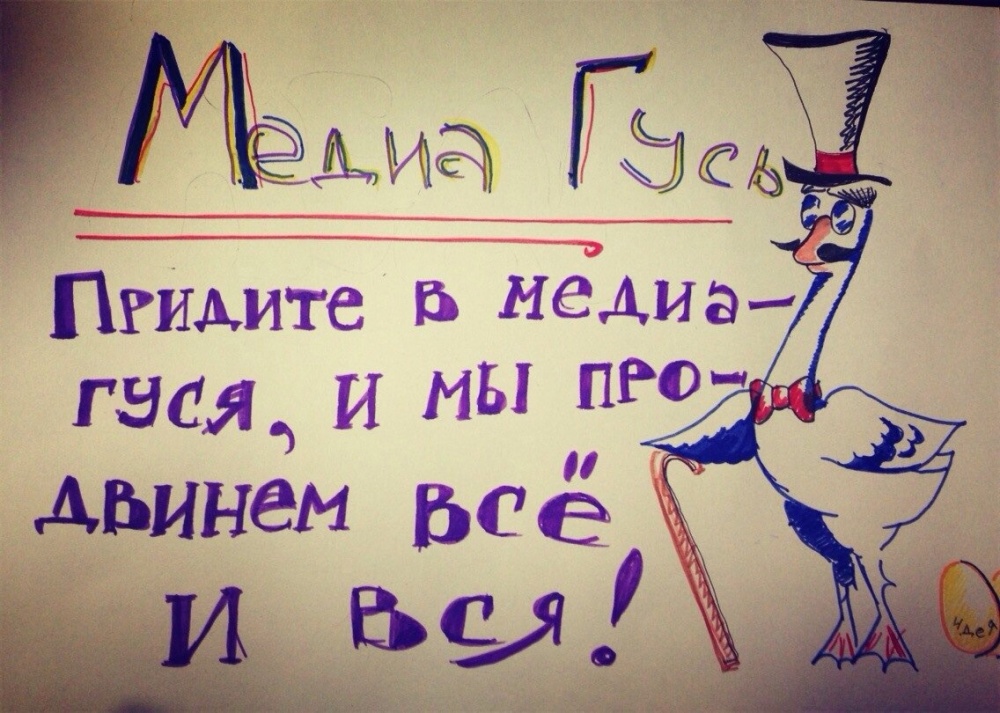 Медиа Гусь
Придите в медиа-
гуся, и мы про-
двинем всё
и вся!
идея